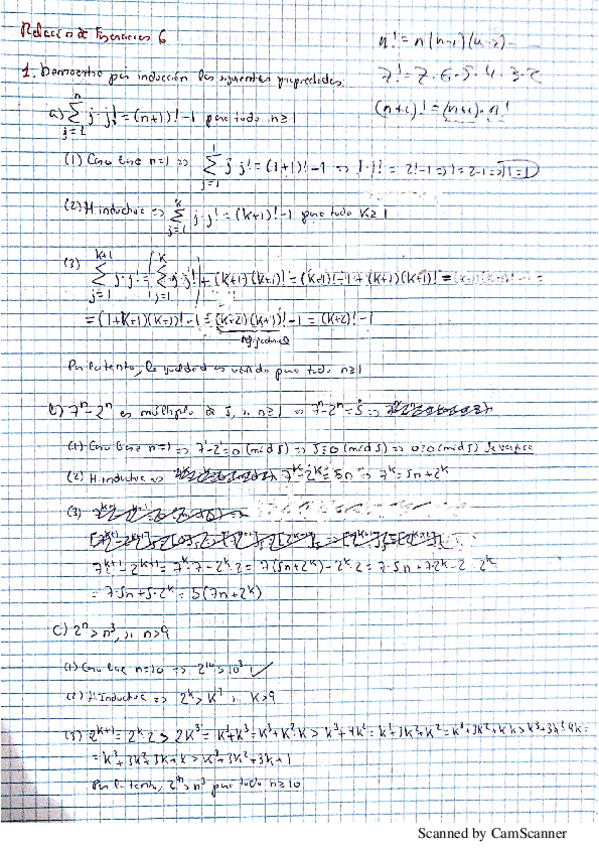 Relación de Ejercicios 6
n! = n(n-1)(n-2)...
7! = 7·6·5·4·3·2
(n+1)! = (n+1)·n!
1. Demuestre por inducción las siguientes propiedades:
a) n ∑ j=1 j·j! = (n+1)! - 1 para todo n≥1
(1) Caso base n=1 => 1 ∑ j=1 j·j! = (1+1)! - 1 => 1·1! = 2! - 1 => 1 = 2-1 => 1=1
(2) H. inductiva => k ∑ j=1 j·j! = (k+1)! - 1 para todo k≥1
(3) k+1 ∑ j=1 j·j! = (k ∑ j=1 j·j!) + (k+1)(k+1)! = (k+1)! - 1 + (k+1)(k+1)! =
= (1+k+1)(k+1)! - 1 = (k+2)(k+1)! - 1 = (k+2)! - 1
Por lo tanto, la igualdad es para todo n≥1
b) 7ⁿ - 2ⁿ es múltiplo de 5, n≥1 => 7ⁿ - 2ⁿ = 5 =>
(1) Caso base n=1 => 7¹ - 2¹ ≡ 0 (mód 5) => 5 ≡ 0 (mód 5) => 0 ≡ 0 (mód 5) Se verifica
(2) H. inductiva => 7ᵏ - 2ᵏ = 5n => 7ᵏ = 5n + 2ᵏ
(3)
7ᵏ⁺¹ - 2ᵏ⁺¹ = 7ᵏ·7 - 2ᵏ·2 = 7(5n + 2ᵏ) - 2ᵏ·2 = 7·5n + 7·2ᵏ - 2·2ᵏ
= 7·5n + 5·2ᵏ = 5(7n + 2ᵏ)
c) 2ⁿ > n³, n>9
(1) Caso base n=10 => 2¹⁰ > 10³ ✓
(2) H. Inductiva => 2ᵏ > k³, k>9
(3) 2ᵏ⁺¹ = 2ᵏ·2 > 2k³ = k³ + k³ = k³ + k²·k > k³ + 4k² = k³ + 3k² + k² = k³ + 3k² + k·k > k³ + 3k² + 4k =
= k³ + 3k² + 3k + k > k³ + 3k² + 3k + 1
Por lo tanto, 2ⁿ > n³ para todo n≥10
Scanned by CamScanner